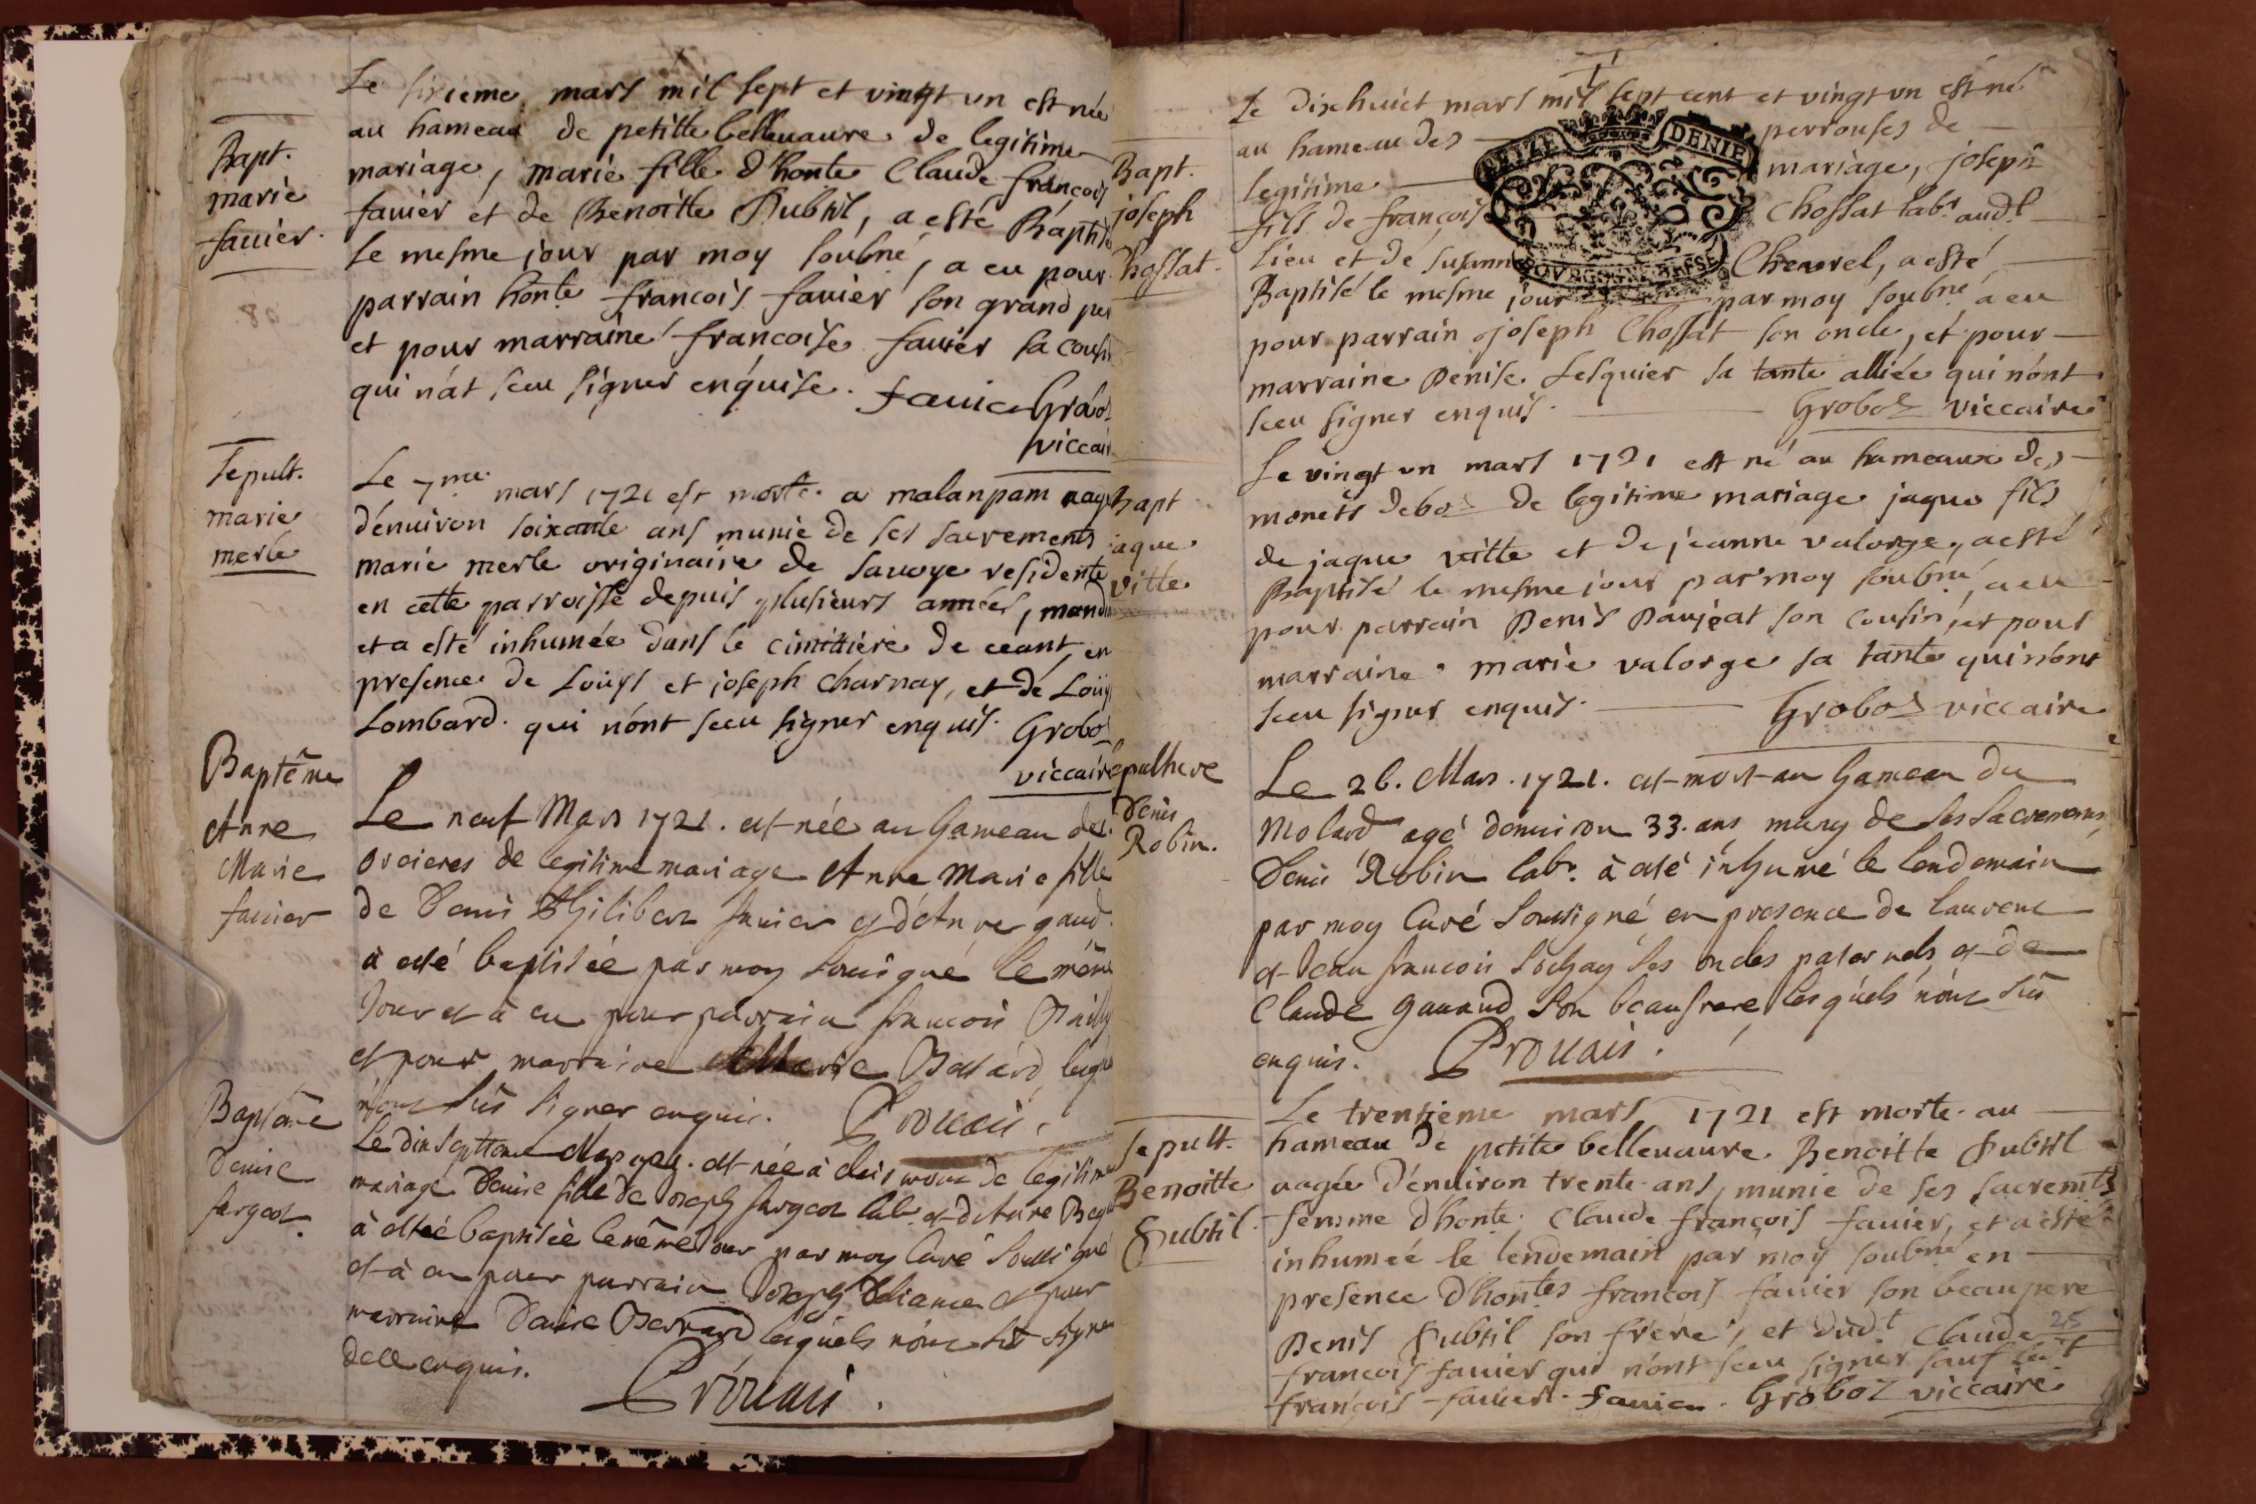 Bapt.
marie
fauier.
Le sixieme mars mil sept et vingt un est née
au hameau de petitte bellevaure de legitime
mariage, marie fille d'honte Claude françois
fauier et de Benoitte Subtil, a esté Baptisé
le mesme jour par moy soubné, a eu pour
parrain honte francois fauier son grand per
et pour marraine francoise fauier sa cousi
qui n'at sceu signer enquise. fauier Grobo
viccai
Sepult.
marie
merle
Le 7me mars 1721 est morte a malanpam aag
d'enuiron soixante ans munie de ses sacrements
marie merle originaire de sauoye residente
en cette parroisse depuis plusieurs années, mandi
et a esté inhumée dans le cimitiere de ceant, en
presence de Louys et joseph charnay, et de Louy
Lombard. qui n'ont sceu signer enquis. Grobo
viccaire
Baptême
Anne
Marie
fauier
Le neuf Mars 1721. est née au hameau des
orcieres de legitime mariage Anne Marie fille
de Denis Philibert fauier et d'Anne gaud
à esté baptisée par moy soussigné le même
Jour et à eu pour parrain francois
et pour marraine Marie
n'ont sus signer enquis. Prouais.
Baptême
Denise
fargeot.
Le dix septieme Mars 1721. est née à de legitime
mariage Denise fille de Joseph fargeot lab. et d'Anne
à esteé baptisée le même Jour par moy Curé soussigné
et à eu pour parrain Joseph et pour
marraine Denise Bernard lesquels n'ont sus signer
de ce enquis.
Prouais.
Bapt.
joseph
Chossat.
Le dixhuict mars mil sept cent et vingt un est né
au hameau des perrouses de
legitime mariage, joseph
fils de françois Chossat labr. audt
lieu et de susanne Cheurel, a esté
TREIZE DENIE
BOURGOGNE BRESSE
Baptisé le mesme jour par moy soubné a eu
pour parrain joseph Chossat son oncle, et pour
marraine Denise Lesquier sa tante alliée qui n'ont
sceu signer enquis. Groboz viccaire
Bapt
jaque
vitte
Le vingt un mars 1721 est né au hameaux des
monets debos de legitime mariage jaque fils
de jaque vitte et de jeanne valorge, a esté
Baptisé le mesme jour par moy soubné, a eu
pour parrain Denis Daujeat son cousin, et pour
marraine marie valorge sa tante qui n'ont
sceu signer enquis. Groboz viccaire
epulture
Denis
Robin.
Le 26. Mars. 1721. est mort au hameau du
Molard agé denuiron 33. ans muny de ses sacremens
Denis Robin labr. à esté inhumé le lendemain
par moy Curé soussigné en presence de laurent
et Jean francois Lochay ses oncles paternels et de
Claude gauand son beaufrere lesquels n'ont sus
enquis. Prouais.
Sepult.
Benoitte
Subtil.
Le trentieme mars 1721 est morte au
hameau de petite bellevaure Benoitte Subtil
aagée d'enuiron trente ans, munie de ses sacremts
femme d'honte Claude françois fauier, et a esté
inhumeé le lendemain par moy soubné en
presence d'hontes francois fauier son beaupere
Denis Subtil son frere, et dudt Claude
25
francois fauier qui n'ont sceu signer sauf ledt
françois fauier. fauier. Groboz viccaire